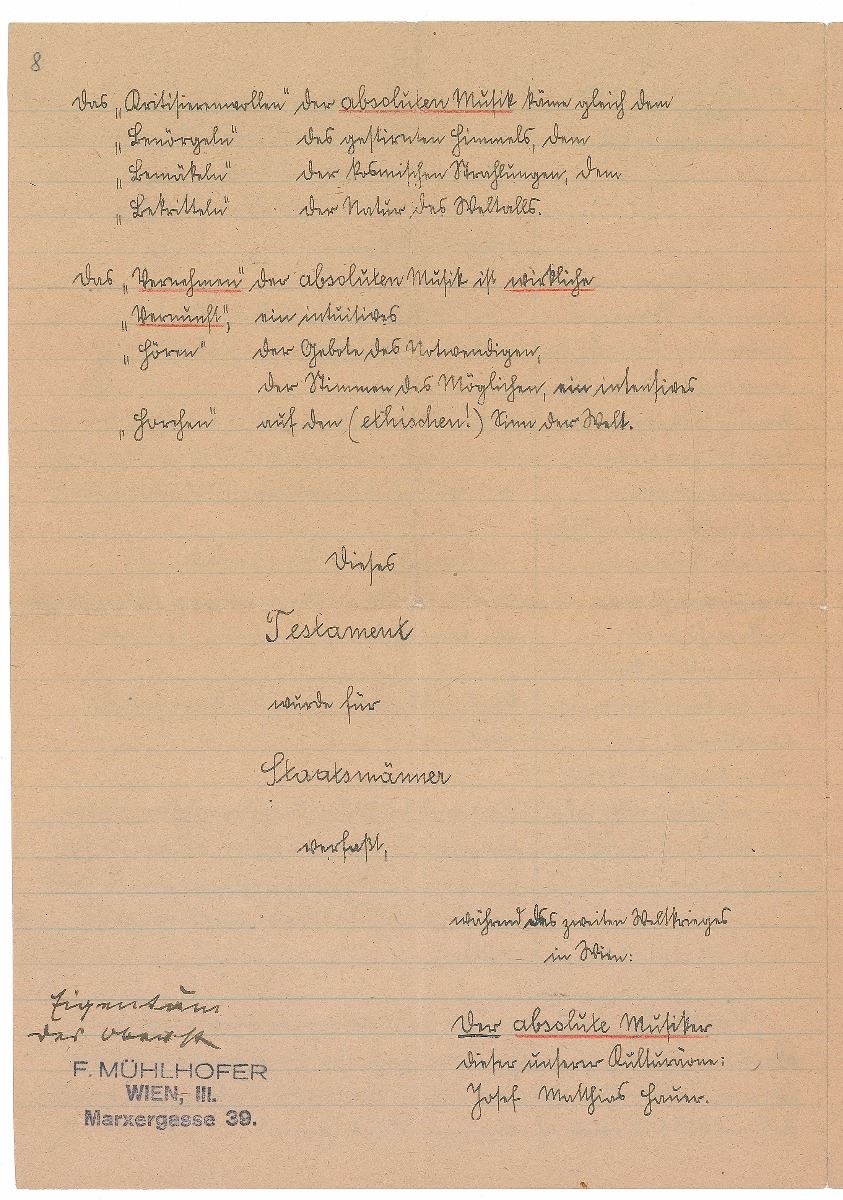 8
Das „Kritisierenwollen" der absoluten Musik käme gleich dem
„Benörgeln" des gestirnten Himmels, dem
„Bemäkeln" der kosmischen Strahlungen, dem
„Bekritteln" der Natur des Weltalls.
Das „Vernehmen" der absoluten Musik ist wirkliche
„Vernunft", ein intuitives
„Hören" der Gebote des Notwendigen,
der Stimmen des Möglichen, ein intensives
„Horchen" auf den (ethischen!) Sinn der Welt.
Dieses
Testament
wurde für
Staatsmänner
verfaßt,
während des zweiten Weltkrieges
in Wien:
Der absolute Musiker
dieser unserer Kulturäone:
Josef Matthias Hauer.
Eigentum
des Oberst
F. MÜHLHOFER
WIEN, III.
Marxergasse 39.